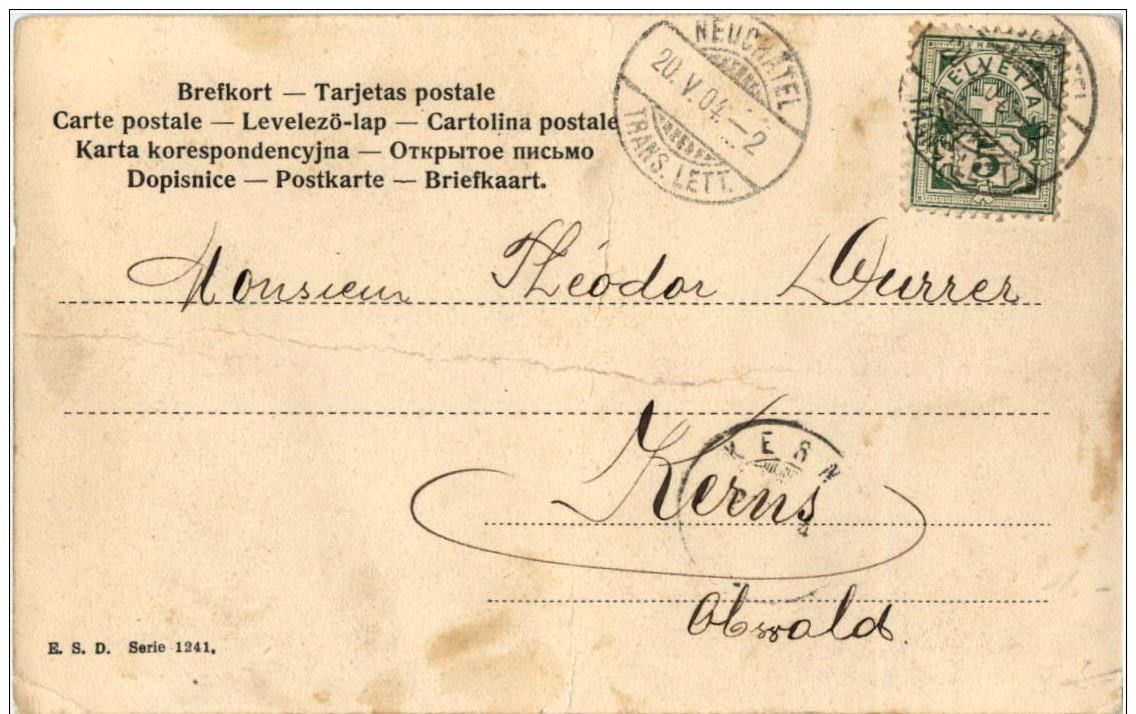 Brefkort — Tarjetas postale
Carte postale — Levelező-lap — Cartolina postale
Karta korespondencyjna — Открытое письмо
Dopisnice — Postkarte — Briefkaart.
NEUCHATEL
20. V. 04. — 2
TRANS. LETT.
HELVETIA
5
Monsieur Théodor Durrer
Kerns
Obwald.
E. S. D. Serie 1241.